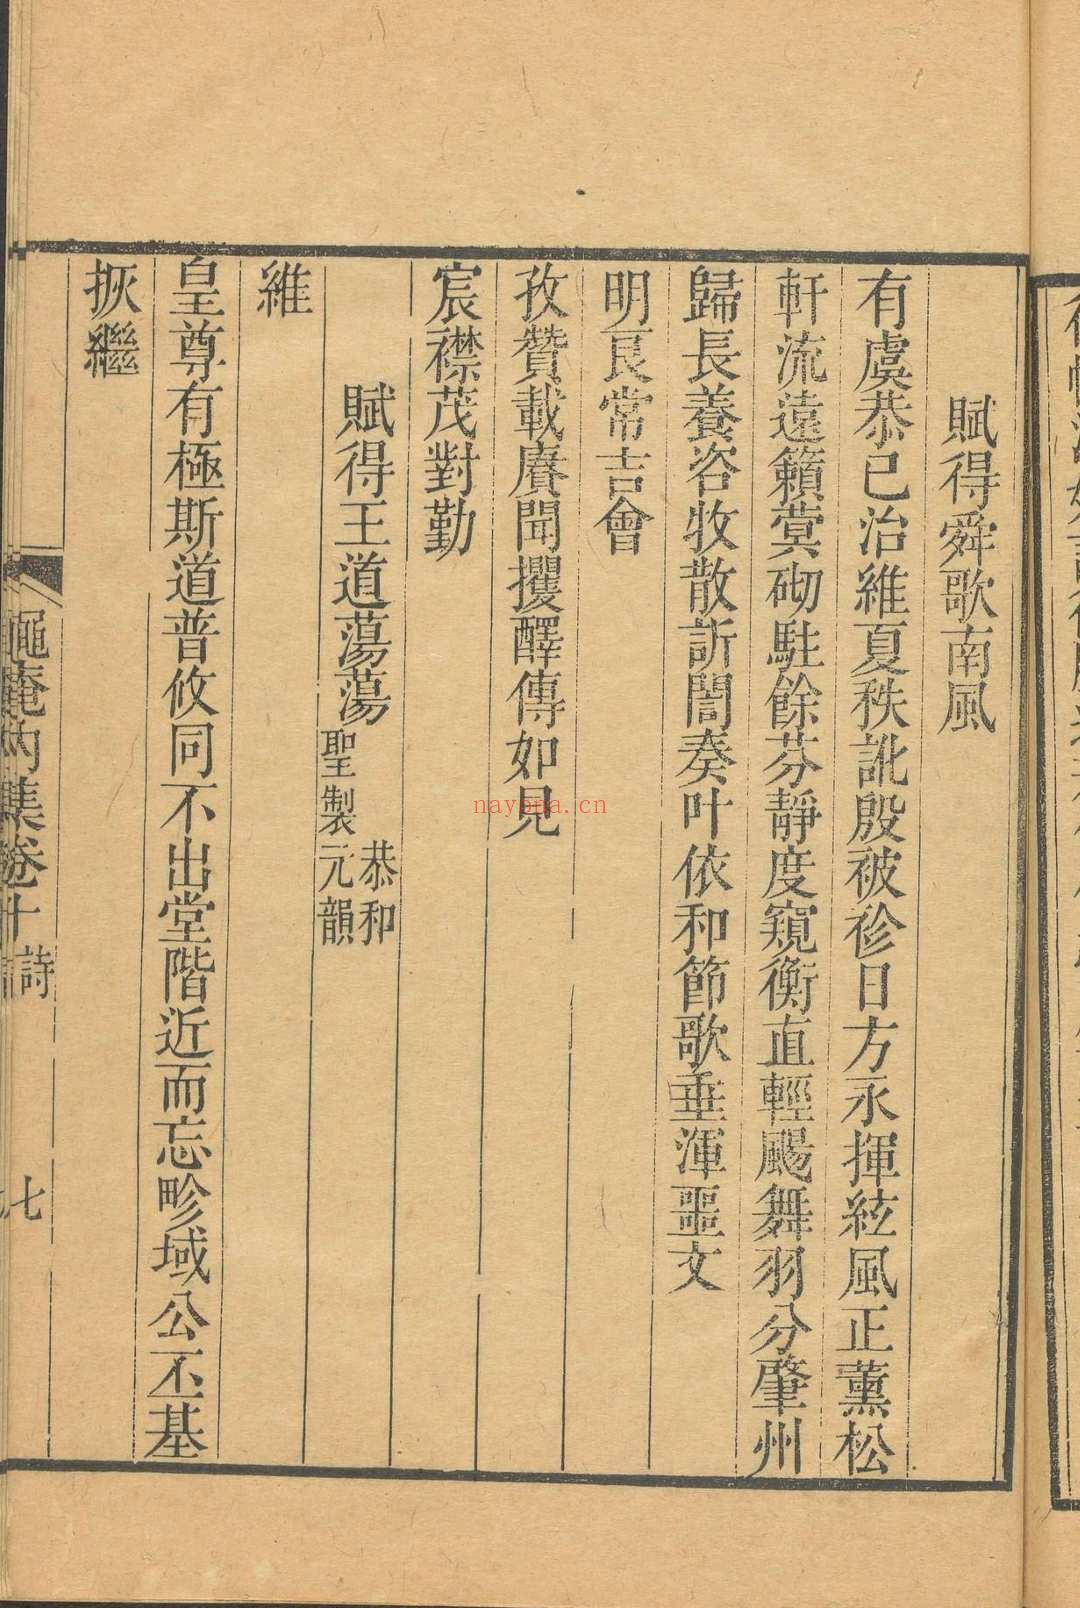 賦得舜歌南風
有虞恭已治維夏秩訛殷被袗日方永揮絃風正薰松
軒流遠籟蓂砌駐餘芬靜度窺衡直輕颺舞羽分肇州
歸長養咨牧散訢誾奏叶依和節歌垂渾噩文
明良常吉會
孜贊載賡聞攫醳傳如見
宸襟茂對勤
賦得王道蕩蕩恭和
聖製元韻
維
皇尊有極斯道普攸同不出堂階近而忘畛域公丕基
拻繼
詩
七
nayona.cn